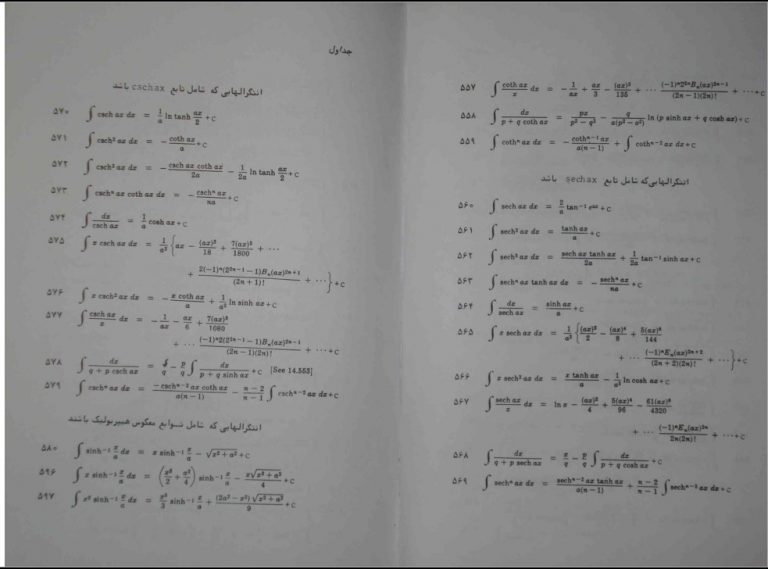 ۵۵۷ ∫ coth ax / x dx = − 1/ax + ax/3 − (ax)³/135 + ⋯ (−1)ⁿ2²ⁿBₙ(ax)²ⁿ⁻¹ / (2n−1)(2n)! + ⋯ + C
۵۵۸ ∫ dx / (p + q coth ax) = px / (p² − q²) − q / a(p² − q²) ln (p sinh ax + q cosh ax) + C
۵۵۹ ∫ cothⁿ ax dx = − cothⁿ⁻¹ ax / a(n−1) + ∫ cothⁿ⁻² ax dx + C
انتگرالهایی که شامل تابع sech ax باشد
۵۶۰ ∫ sech ax dx = 2/a tan⁻¹ eᵃˣ + C
۵۶۱ ∫ sech² ax dx = tanh ax / a + C
۵۶۲ ∫ sech³ ax dx = sech ax tanh ax / 2a + 1/2a tan⁻¹ sinh ax + C
۵۶۳ ∫ sechⁿ ax tanh ax dx = − sechⁿ ax / na + C
۵۶۴ ∫ dx / sech ax = sinh ax / a + C
۵۶۵ ∫ x sech ax dx = 1/a² { (ax)²/2 − (ax)⁴/8 + 5(ax)⁶/144
+ ⋯ (−1)ⁿEₙ(ax)²ⁿ⁺² / (2n+2)(2n)! + ⋯ } + C
۵۶۶ ∫ x sech² ax dx = x tanh ax / a − 1/a² ln cosh ax + C
۵۶۷ ∫ sech ax / x dx = ln x − (ax)²/4 + 5(ax)⁴/96 − 61(ax)⁶/4320
+ ⋯ (−1)ⁿEₙ(ax)²ⁿ / 2n(2n)! + ⋯ + C
۵۶۸ ∫ dx / (q + p sech ax) = x/q − p/q ∫ dx / (p + q cosh ax) + C
۵۶۹ ∫ sechⁿ ax dx = sechⁿ⁻² ax tanh ax / a(n−1) + (n−2)/(n−1) ∫ sechⁿ⁻² ax dx + C
جداول
انتگرالهایی که شامل تابع csch ax باشد
۵۷۰ ∫ csch ax dx = 1/a ln tanh ax/2 + C
۵۷۱ ∫ csch² ax dx = − coth ax / a + C
۵۷۲ ∫ csch³ ax dx = − csch ax coth ax / 2a − 1/2a ln tanh ax/2 + C
۵۷۳ ∫ cschⁿ ax coth ax dx = − cschⁿ ax / na + C
۵۷۴ ∫ dx / csch ax = 1/a cosh ax + C
۵۷۵ ∫ x csch ax dx = 1/a² { ax − (ax)³/18 + 7(ax)⁵/1800 + ⋯
+ 2(−1)ⁿ(2²ⁿ⁻¹ − 1)Bₙ(ax)²ⁿ⁺¹ / (2n+1)! + ⋯ } + C
۵۷۶ ∫ x csch² ax dx = − x coth ax / a + 1/a² ln sinh ax + C
۵۷۷ ∫ csch ax / x dx = − 1/ax − ax/6 + 7(ax)³/1080
+ ⋯ (−1)ⁿ2(2²ⁿ⁻¹ − 1)Bₙ(ax)²ⁿ⁻¹ / (2n−1)(2n)! + ⋯ + C
۵۷۸ ∫ dx / (q + p csch ax) = x/q − p/q ∫ dx / (p + q sinh ax) + C [See 14.553]
۵۷۹ ∫ cschⁿ ax dx = −cschⁿ⁻² ax coth ax / a(n−1) − (n−2)/(n−1) ∫ cschⁿ⁻² ax dx + C
انتگرالهایی که شامل توابع معکوس هیپربولیک باشند
۵۸۰ ∫ sinh⁻¹ x/a dx = x sinh⁻¹ x/a − √(x² + a²) + C
۵۹۶ ∫ x sinh⁻¹ x/a dx = (x²/2 + a²/4) sinh⁻¹ x/a − x√(x² + a²) / 4 + C
۵۹۷ ∫ x² sinh⁻¹ x/a dx = x³/3 sinh⁻¹ x/a + (2a² − x²)√(x² + a²) / 9 + C